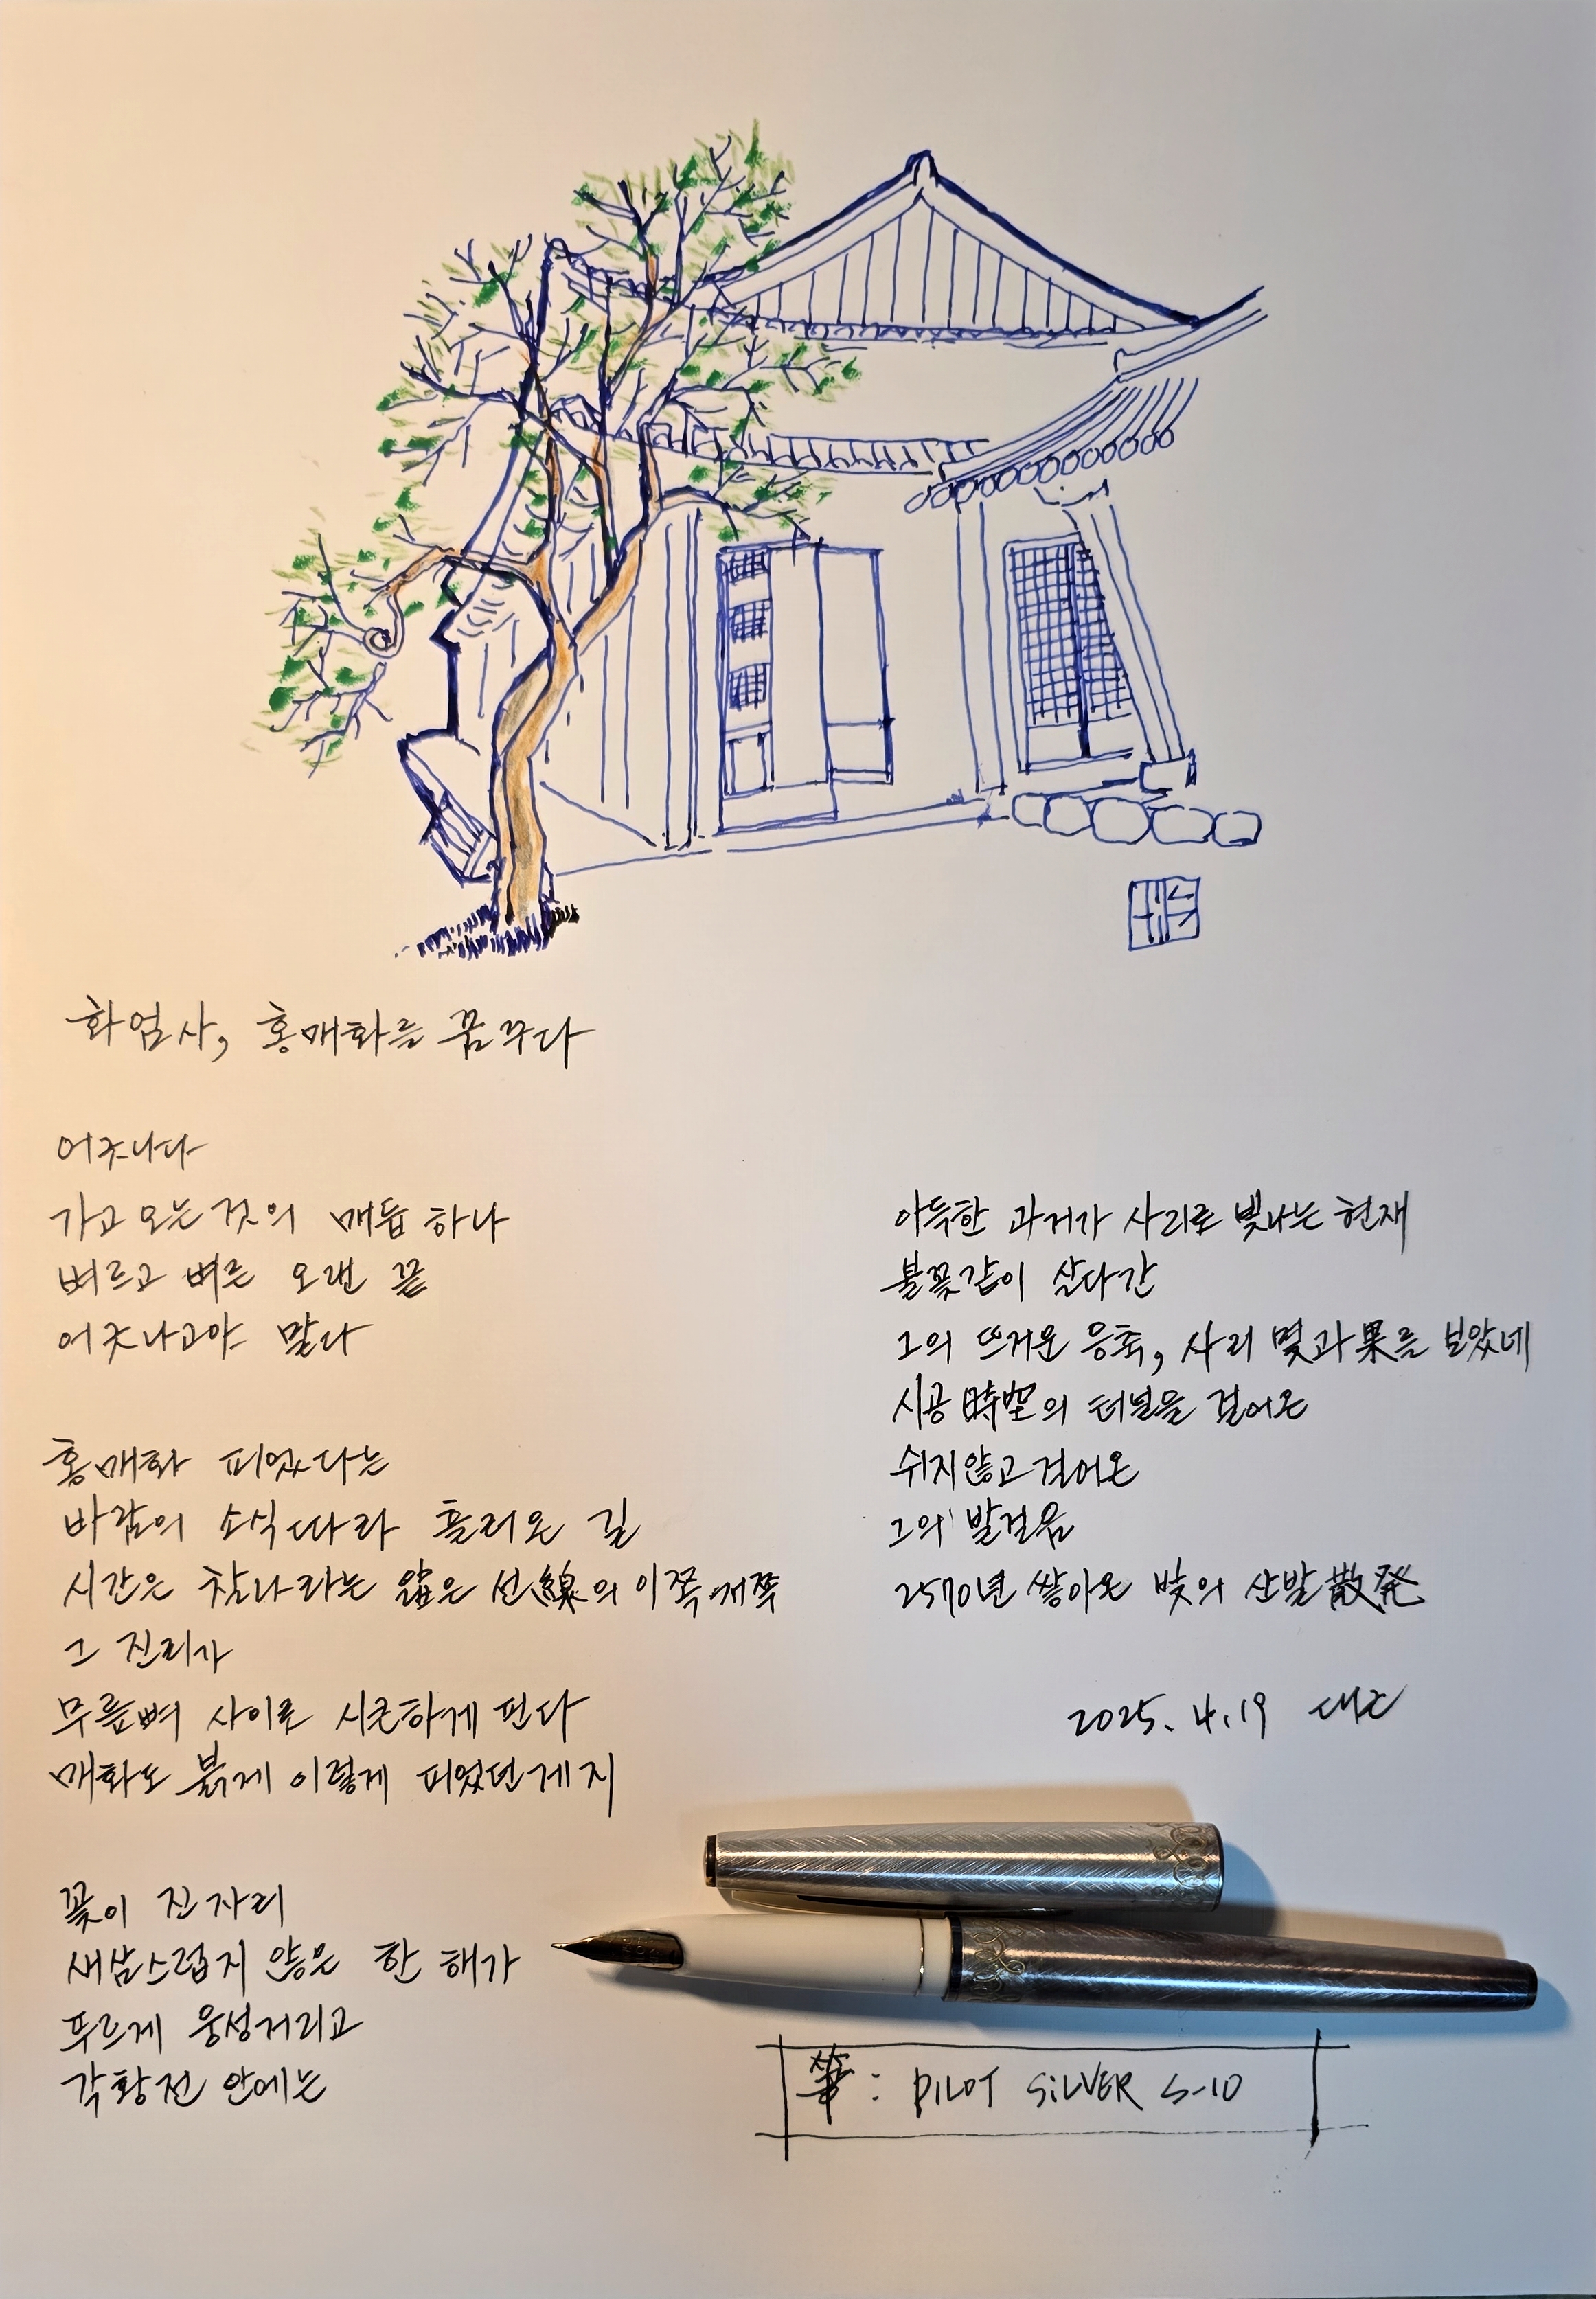 화엄사, 홍매화를 꿈꾸다
어긋나다
가고 오는 것의 매듭 하나
벼르고 벼른 오랜 끝
어긋나고야 말다
홍매화 피었다는
바람의 소식따라 흘러온 길
시간은 찰나라는 얇은 선線의 이쪽저쪽
그 진리가
무릎뼈 사이로 시큰하게 핀다
매화도 붉게 이렇게 피었던게지
꽃이 진 자리
새삼스럽지 않은 한 해가
푸르게 웅성거리고
각황전 안에는
아득한 과거가 사리로 빛나는 현재
불꽃같이 살다간
그의 뜨거운 응축, 사리 몇과果를 보았네
시공時空의 터널을 걸어온
쉬지않고 걸어온
그의 발걸음
2570년 쌓아온 빛의 산발散発
2025. 4. 19
筆: PILOT SILVER S-10